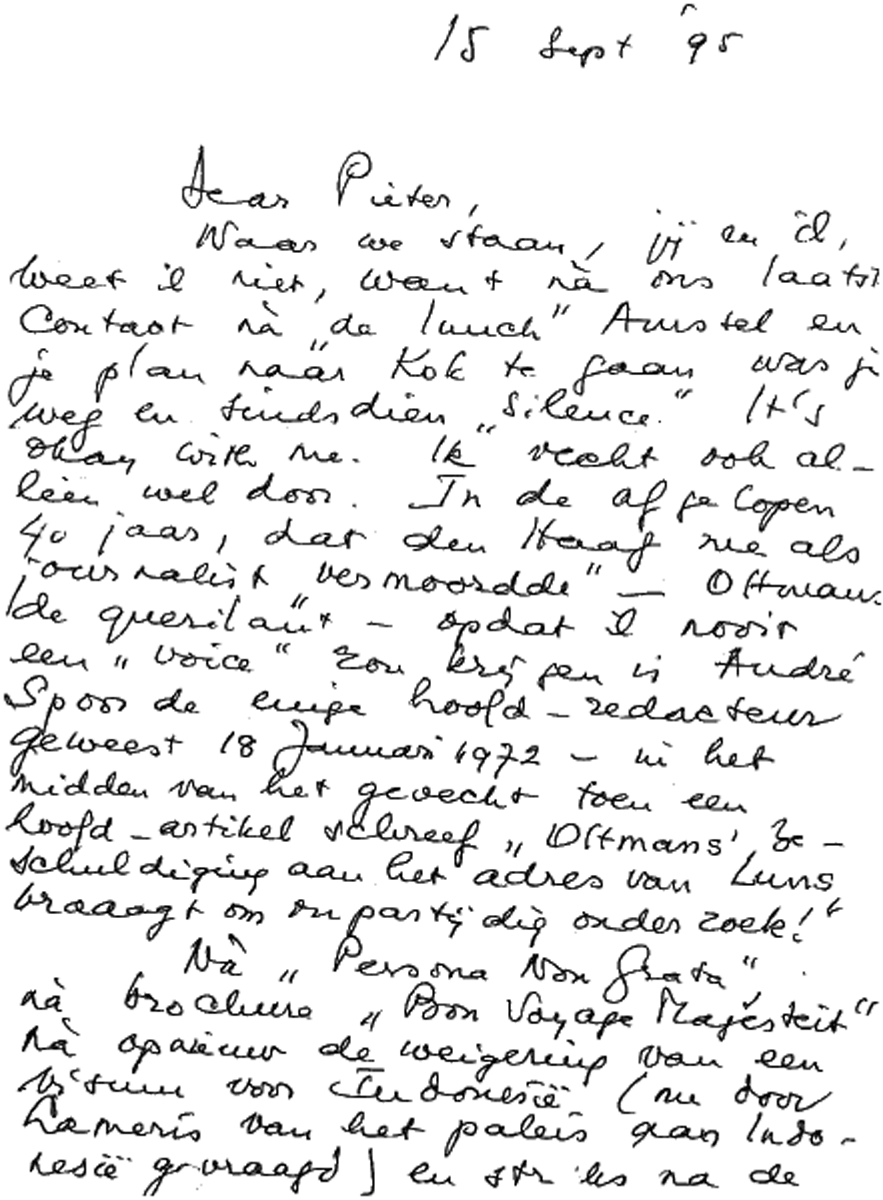 15 Sept '95
Dear Pieter,
Waar we staan, jij en ik,
weet ik niet, want nà ons laatst
Contact nà „de lunch" Amstel en
je plan naar Kok te gaan was je
weg en sindsdien „silence." It's
okay with me. Ik vecht ook al-
leen wel door. In de afgelopen
40 jaar, dat den Haag me als
journalist „vermoordde" — Oltmans
de querilant – opdat ik nooit
een „voice" zou krijgen is André
Spoor de enige hoofd-redacteur
geweest 18 Januari 1972 – in het
midden van het gevecht toen een
hoofd-artikel schreef „Oltmans' be-
schuldiging aan het adres van Luns
vraaagt om onpartijdig onderzoek!"
Nà „Persona Non Grata",
nà brochure „Bon Voyage Majesteit"
nà opnieuw de weigering van een
visum voor Indonesië (nu door
Hameris van het paleis aan Indo-
nesië gevraagd) en straks na de